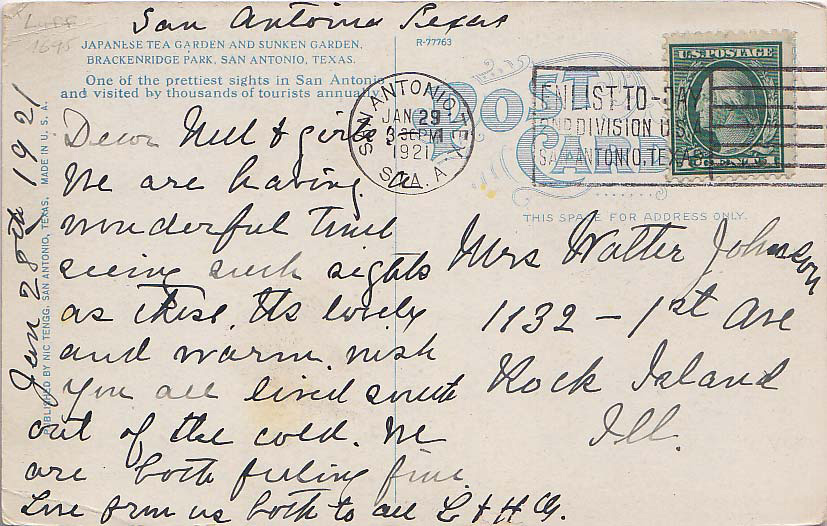 San Antonio Texas
1695
JAPANESE TEA GARDEN AND SUNKEN GARDEN,
BRACKENRIDGE PARK, SAN ANTONIO, TEXAS.
One of the prettiest sights in San Antonio
and visited by thousands of tourists annually.
R-77763
POST CARD
SAN ANTONIO TEX
JAN 29
3 30 PM
1921
STA. A
ENLIST TO-DAY
2ND DIVISION U.S.
SAN ANTONIO, TEXAS
U.S. POSTAGE
CENTS
THIS SPACE FOR ADDRESS ONLY.
Jan 28th 1921
PUBLISHED BY NIC TENGG, SAN ANTONIO, TEXAS. MADE IN U.S.A.
Dear Nell & girls
We are having
a
wonderful time
seeing such sights
as these. Its lovely
and warm. wish
you all lived south
out of the cold. We
are both feeling fine.
Love from us both to all L & H G.
Mrs Walter Johnson
1132 - 1st Ave
Rock Island
Ill.